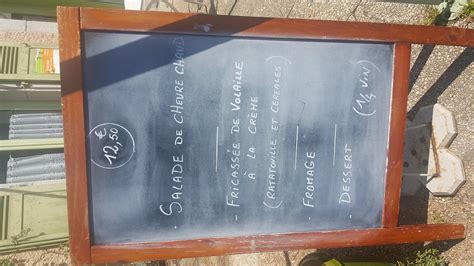 12,50 €
- SALADE DE CHEVRE CHAUD
- FRICASSÉE DE VOLAILLE
À LA CRÈME
(RATATOUILLE ET CEREALES)
- FROMAGE
- DESSERT
(1/4 VIN)